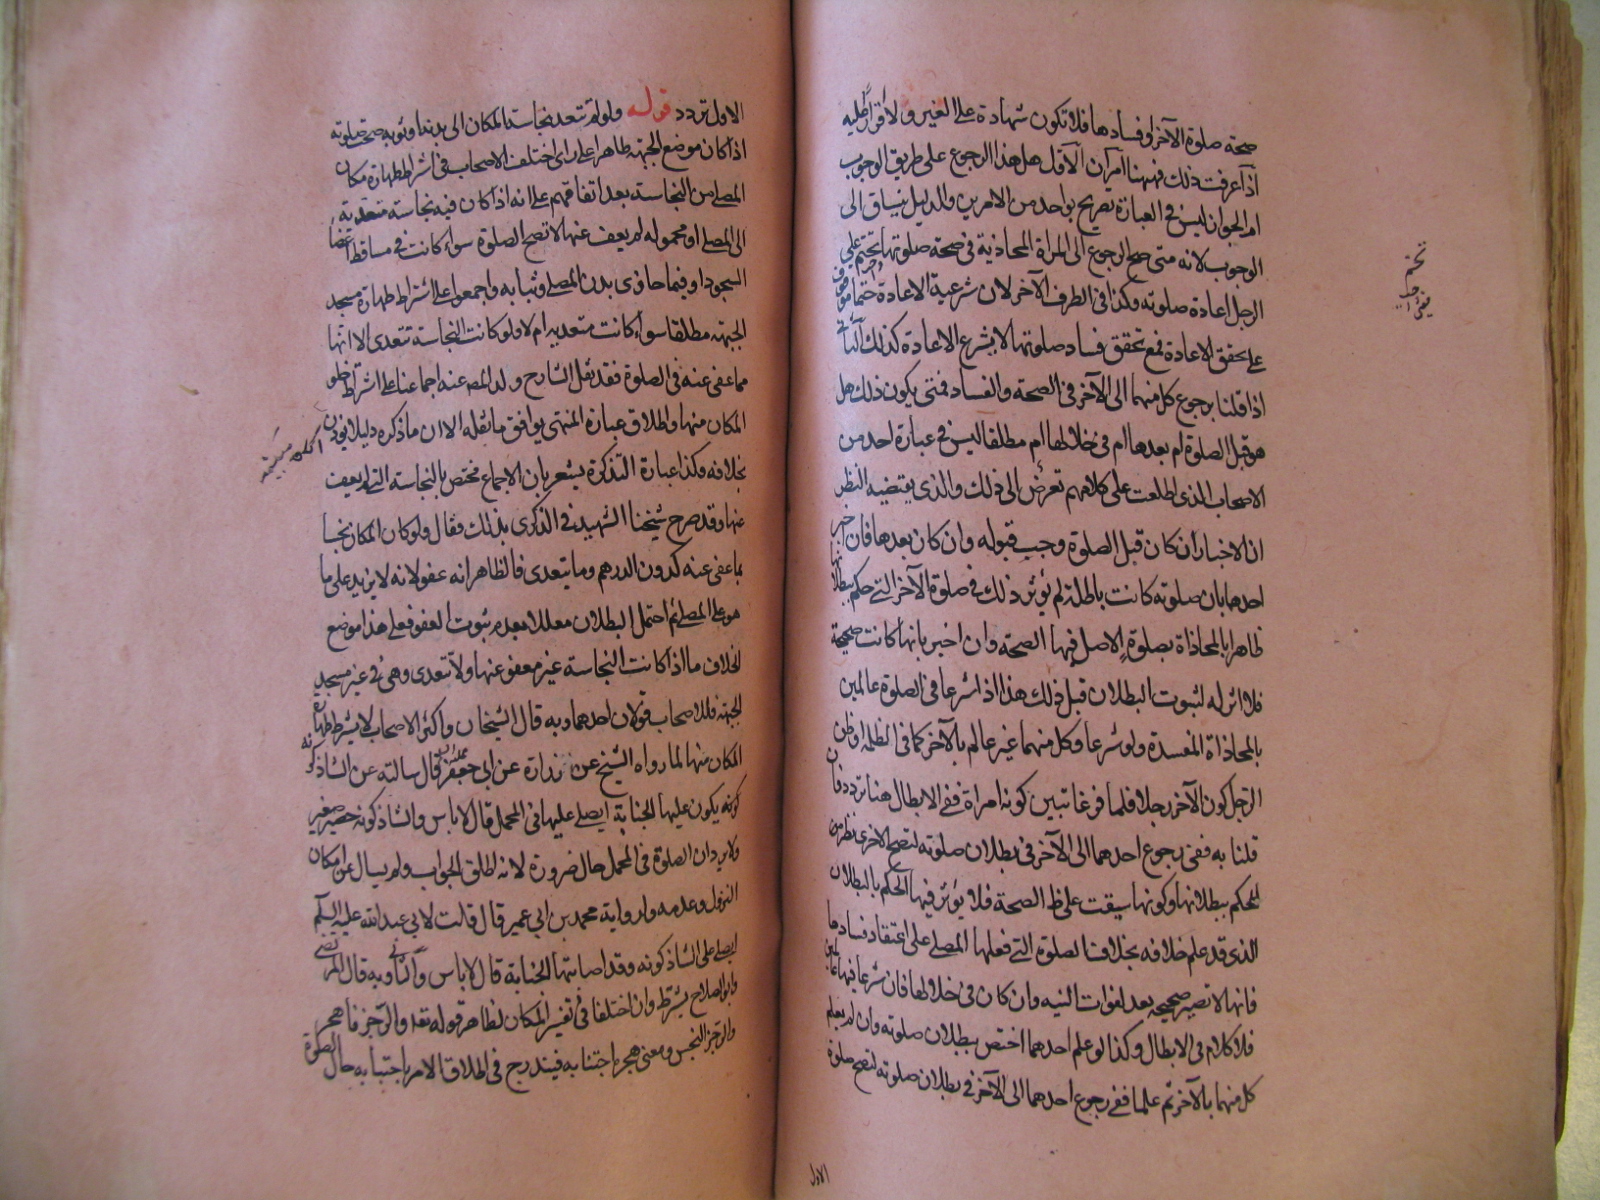 صحة صلوة الآخر او فسادها فلا تكون شهادة على الغير ولا اقرار عليه
اذا عرفت ذلك فههنا امران الاول هل هذا الرجوع على طريق الوجوب
ام الجواز ليس في العبارة تصريح بواحد من الامرين والدليل ينساق الى
الوجوب لانه متى صح الرجوع الى المراة المحاذية في صحة صلوتها تحتم على
الرجل اعادة صلوته وكذا في الطرف الآخر لان شرعية الاعادة حتما موقوف
على تحقق الاعادة فمع تحقق فساد صلوتها لا يشرع الاعادة كذلك الثاني
اذا قلنا برجوع كل منهما الى الآخر في الصحة والفساد فمتى يكون ذلك هل
هو قبل الصلوة ام بعدها ام في خلالها ام مطلقا ليس في عبارة احد من
الاصحاب الذي اطلعت على كلامهم تعرض الى ذلك والذي يقتضيه النظر
ان الاخبار ان كان قبل الصلوة وجب قبوله وان كان بعدها فان اخبر
احدهما بان صلوته كانت باطلة لم يؤثر ذلك في صلوة الآخر التي حكم ببطلانها
ظاهرا بالمحاذاة بصلوة الاصل فيها الصحة وان اخبر بانها كانت صحيحة
فلا اثر له لثبوت البطلان قبل ذلك هذا اذا شرعا في الصلوة عالمين
بالمحاذاة المفسدة ولو شرعا وكل منهما غير عالم بالآخر كما في الظلمة او ظن
الرجل كون الآخر رجلا فلما فرغا تبين كونه امراة ففي الابطال هنا تردد فان
قلنا به ففي رجوع احدهما الى الآخر في بطلان صلوته لتصح الاخرى نظر من
الحكم ببطلانها وكونها سبقت على ظ الصحة فلا يؤثر فيها الحكم بالبطلان
الذي قد علم خلافه بخلاف الصلوة التي فعلها المصلي على اعتقاد فسادها
فانها لا تصير صحيحه بعد لفوات النيه وان كان في خلالها فان شرعا فيها عالمين
فلا كلام في الابطال وكذا لو علم احدهما اختص ببطلان صلوته وان لم يعلم
كل منهما بالآخر ثم علما ففي رجوع احدهما الى الآخر في بطلان صلوته لتصح صلوة
الاول
تحتم
الاول تردد قوله ولو لم تتعد نجاسة المكان الى بدنه او ثوبه صحت صلوته
اذا كان موضع الجبهة طاهرا على راى اختلف الاصحاب في اشتراط طهارة مكان
المصلي من النجاسة بعد اتفاقهم على انه اذا كان فيه نجاسة متعدية
الى المصلي او محموله لم يعف عنها لا تصح الصلوة سواء كانت في مساقط اعضاء
السجود او فيما حاذى بدن المصلي وثيابه واجمعوا على اشتراط طهارة مسجد
الجبهة مطلقا سواء كانت متعدية ام لا ولو كانت النجاسة تتعدى الا انها
مما عفى عنه في الصلوة فقد نقل الشارح ولد المص عنه اجماعنا على اشتراط خلو
المكان منها واطلاق عبارة المنتهى يوافق ما نقله الا ان ما ذكره دليلا يؤذن
بخلافه وكذا عبارة التذكرة يشعر بان الاجماع مختص بالنجاسة التي لم يعف
عنها وقد صرح شيخنا الشهيد في الذكرى بذلك فقال ولو كان المكان نجسا
بما عفى عنه كدون الدرهم وما يتعدى فالظاهر انه عفو لانه لا يزيد على ما
هو على المصلي ثم احتمل البطلان معللا بعدم ثبوت العفو فعلى هذا موضع
الخلاف ما اذا كانت النجاسة غير معفو عنها ولا تتعدى وهي في غير مسجد
الجبهة فللاصحاب قولان احدهما وبه قال الشيخان واكثر الاصحاب لا يشترط طهارة
المكان منها لما رواه الشيخ عن زرارة عن ابي جعفر ع قال سالته عن الشاذكونه
يكون عليها الجنابة ايصلي عليها في المحمل قال لا باس والشاذكونه حصير صغير
ولا يرد ان الصلوة في المحمل حال ضرورة لانه اطلق الجواب ولم يسال عن امكان
النزول وعدمه ولرواية محمد بن ابي عمير قال قلت لابي عبدالله عليه السلم
ايصلي على الشاذكونه وقد اصابتها الجنابة قال لا باس والثاني وبه قال المرتضى
وابو الصلاح يشترط وان اختلفا في تفسير المكان لظاهر قوله تعد والرجز فاهجر
والرجز النجس ومعنى هجره اجتنابه فيندرج في اطلاق الامر باجتنابه حال الصلوة